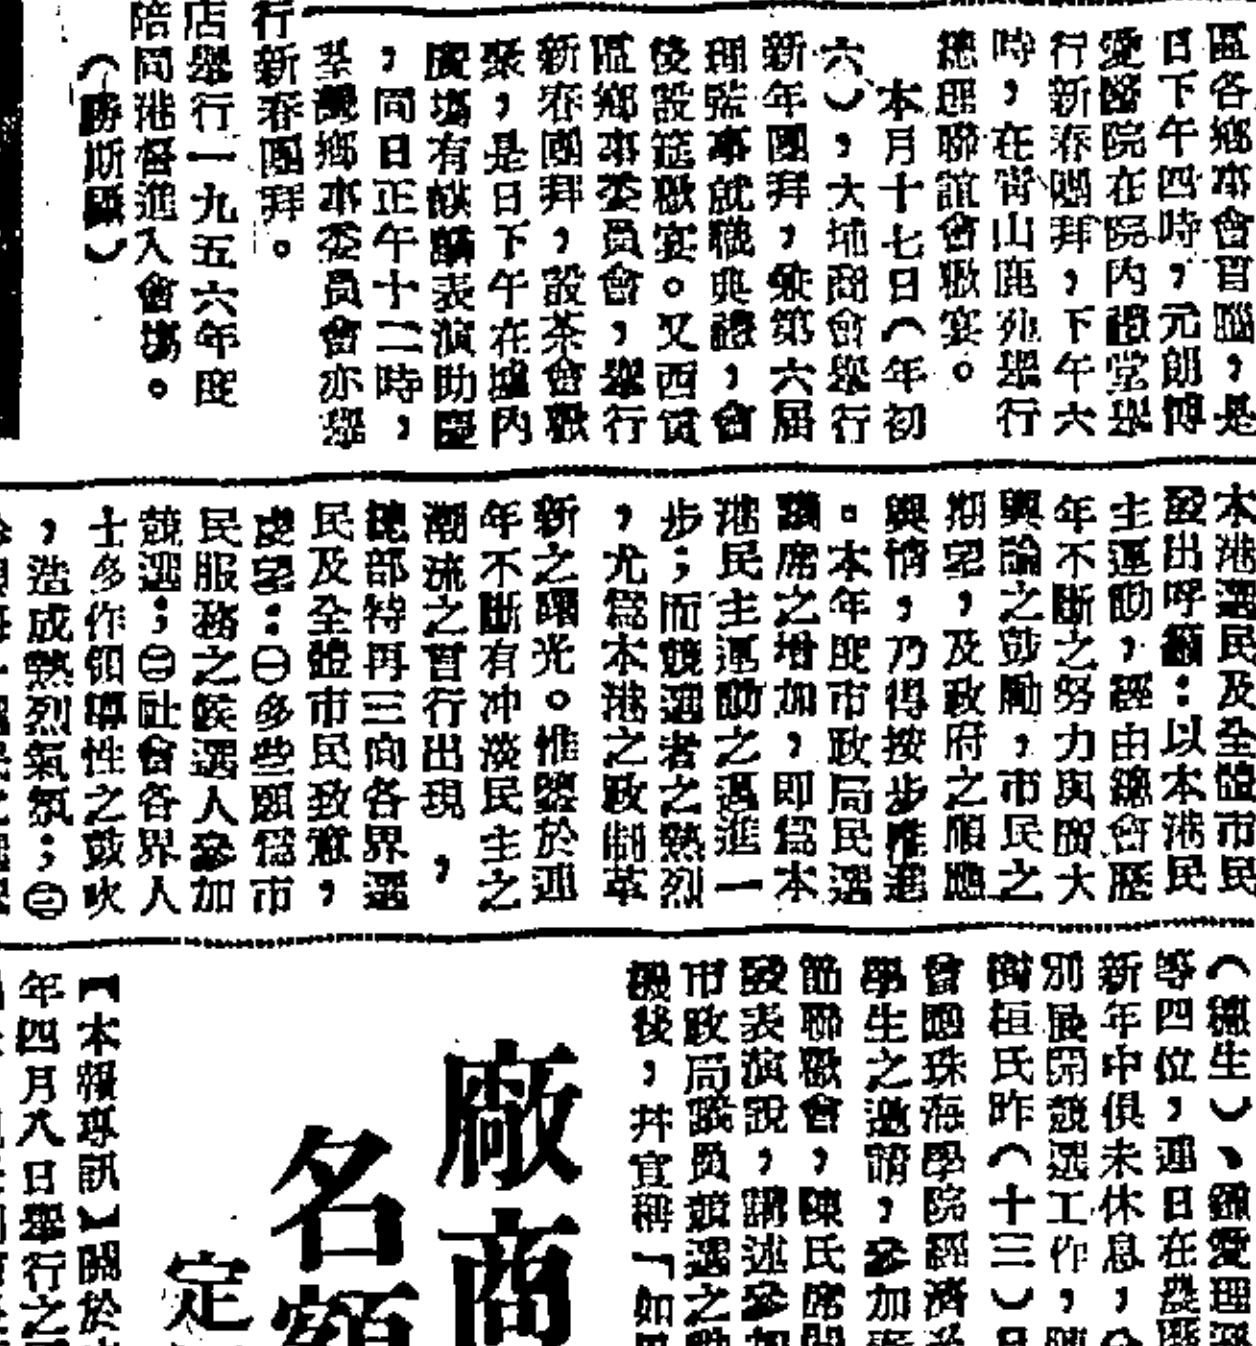 區各鄉事會首腦，是
日下午四時，元朗博
愛醫院在院內禮堂舉
行新春團拜，下午六
時，在青山鹿苑舉行
總理聯誼會歡宴。
本月十七日（年初
六），大埔商會舉行
新年團拜，兼第六屆
理監事就職典禮，會
後設筵歡宴。又西貢
區鄉事委員會，舉行
新春團拜，設茶會聯
歡，是日下午在墟內
廣場有麒麟表演助慶
，同日正午十二時，
荃灣鄉事委員會亦舉
行新春團拜。
店舉行一九五六年度
陪同港督進入會場。
（勝斯攝）
本港選民及全體市民
發出呼籲：以本港民
主運動，經由總會歷
年不斷之努力與廣大
輿論之鼓勵，市民之
期望，及政府之順應
輿情，乃得按步推進
。本年度市政局民選
議席之增加，即爲本
港民主運動之邁進一
步；而競選者之熱烈
，尤爲本港之政制革
新之曙光。惟鑒於連
年不斷有冲淡民主之
潮流之冒行出現，
總部特再三向各界選
民及全體市民致意，
虔望：㊀多些願爲市
民服務之候選人參加
競選；㊁社會各界人
士多作領導性之鼓吹
，造成熱烈氣氛；㊂
生）、鍾愛理
等四位，連日在農曆
新年中俱未休息，分
別展開競選工作，陳
樹桓氏昨（十三）日
會應珠海學院經濟系
學生之邀請，參加
節聯歡會，陳氏席間
發表演說，講述參加
市政局議員競選之動
機後，幷宣稱「如
廠商
名額
定
【本報專訊】關於
年四月八日舉行之